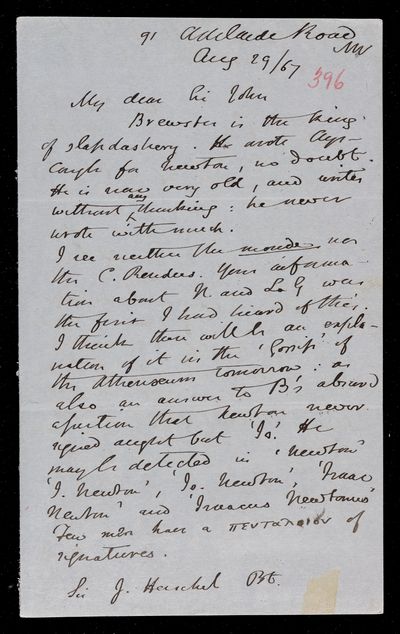 91 Adelaide Road
NW
Aug 29/67
396
My dear Sir John
Brewster is the king
of slapdashery. He wrote Ays-
cough for Newton, no doubt.
He is now very old, and writes
without any thinking: he never
wrote with much.
I see neither the monde nor
the C. Rendus. Your informa-
tion about N. and Le G was
the first I had heard of this.
I think there will be an expla-
nation of it in the 'Gossip' of
the Athenaeum tomorrow: as
also an answer to B's absurd
assertion that Newton never
signed aught but 'Is.' He
may be detected in 'Newton'
'I. Newton', 'Is. Newton', 'Isaac
Newton' and 'Isaacus Newtonus'
Few men have a πενταλοιον of
signatures.
Sir J. Herschel Bt.